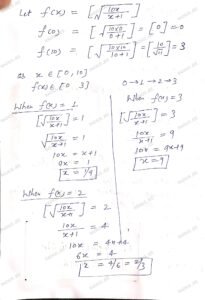 Let f(x) = [√(10x/(x+1))]
f(0) = [√(10×0/(0+1))] = [0] = 0
f(10) = [√(10×10/(10+1))] = [10/√11] = 3
as x ∈ [0, 10]
f(x) ∈ [0 3]
0→1→2→3
When f(x) = 1
[√(10x/(x+1))] = 1
√(10x/(x+1)) = 1
10x = x+1
9x = 1
x = 1/9
When f(x) = 2
[√(10x/(x+1))] = 2
10x/(x+1) = 4
10x = 4x+4
6x = 4
x = 4/6 = 2/3
When f(x) = 3
[√(10x/(x+1))] = 3
10x/(x+1) = 9
10x = 9x+9
x = 9